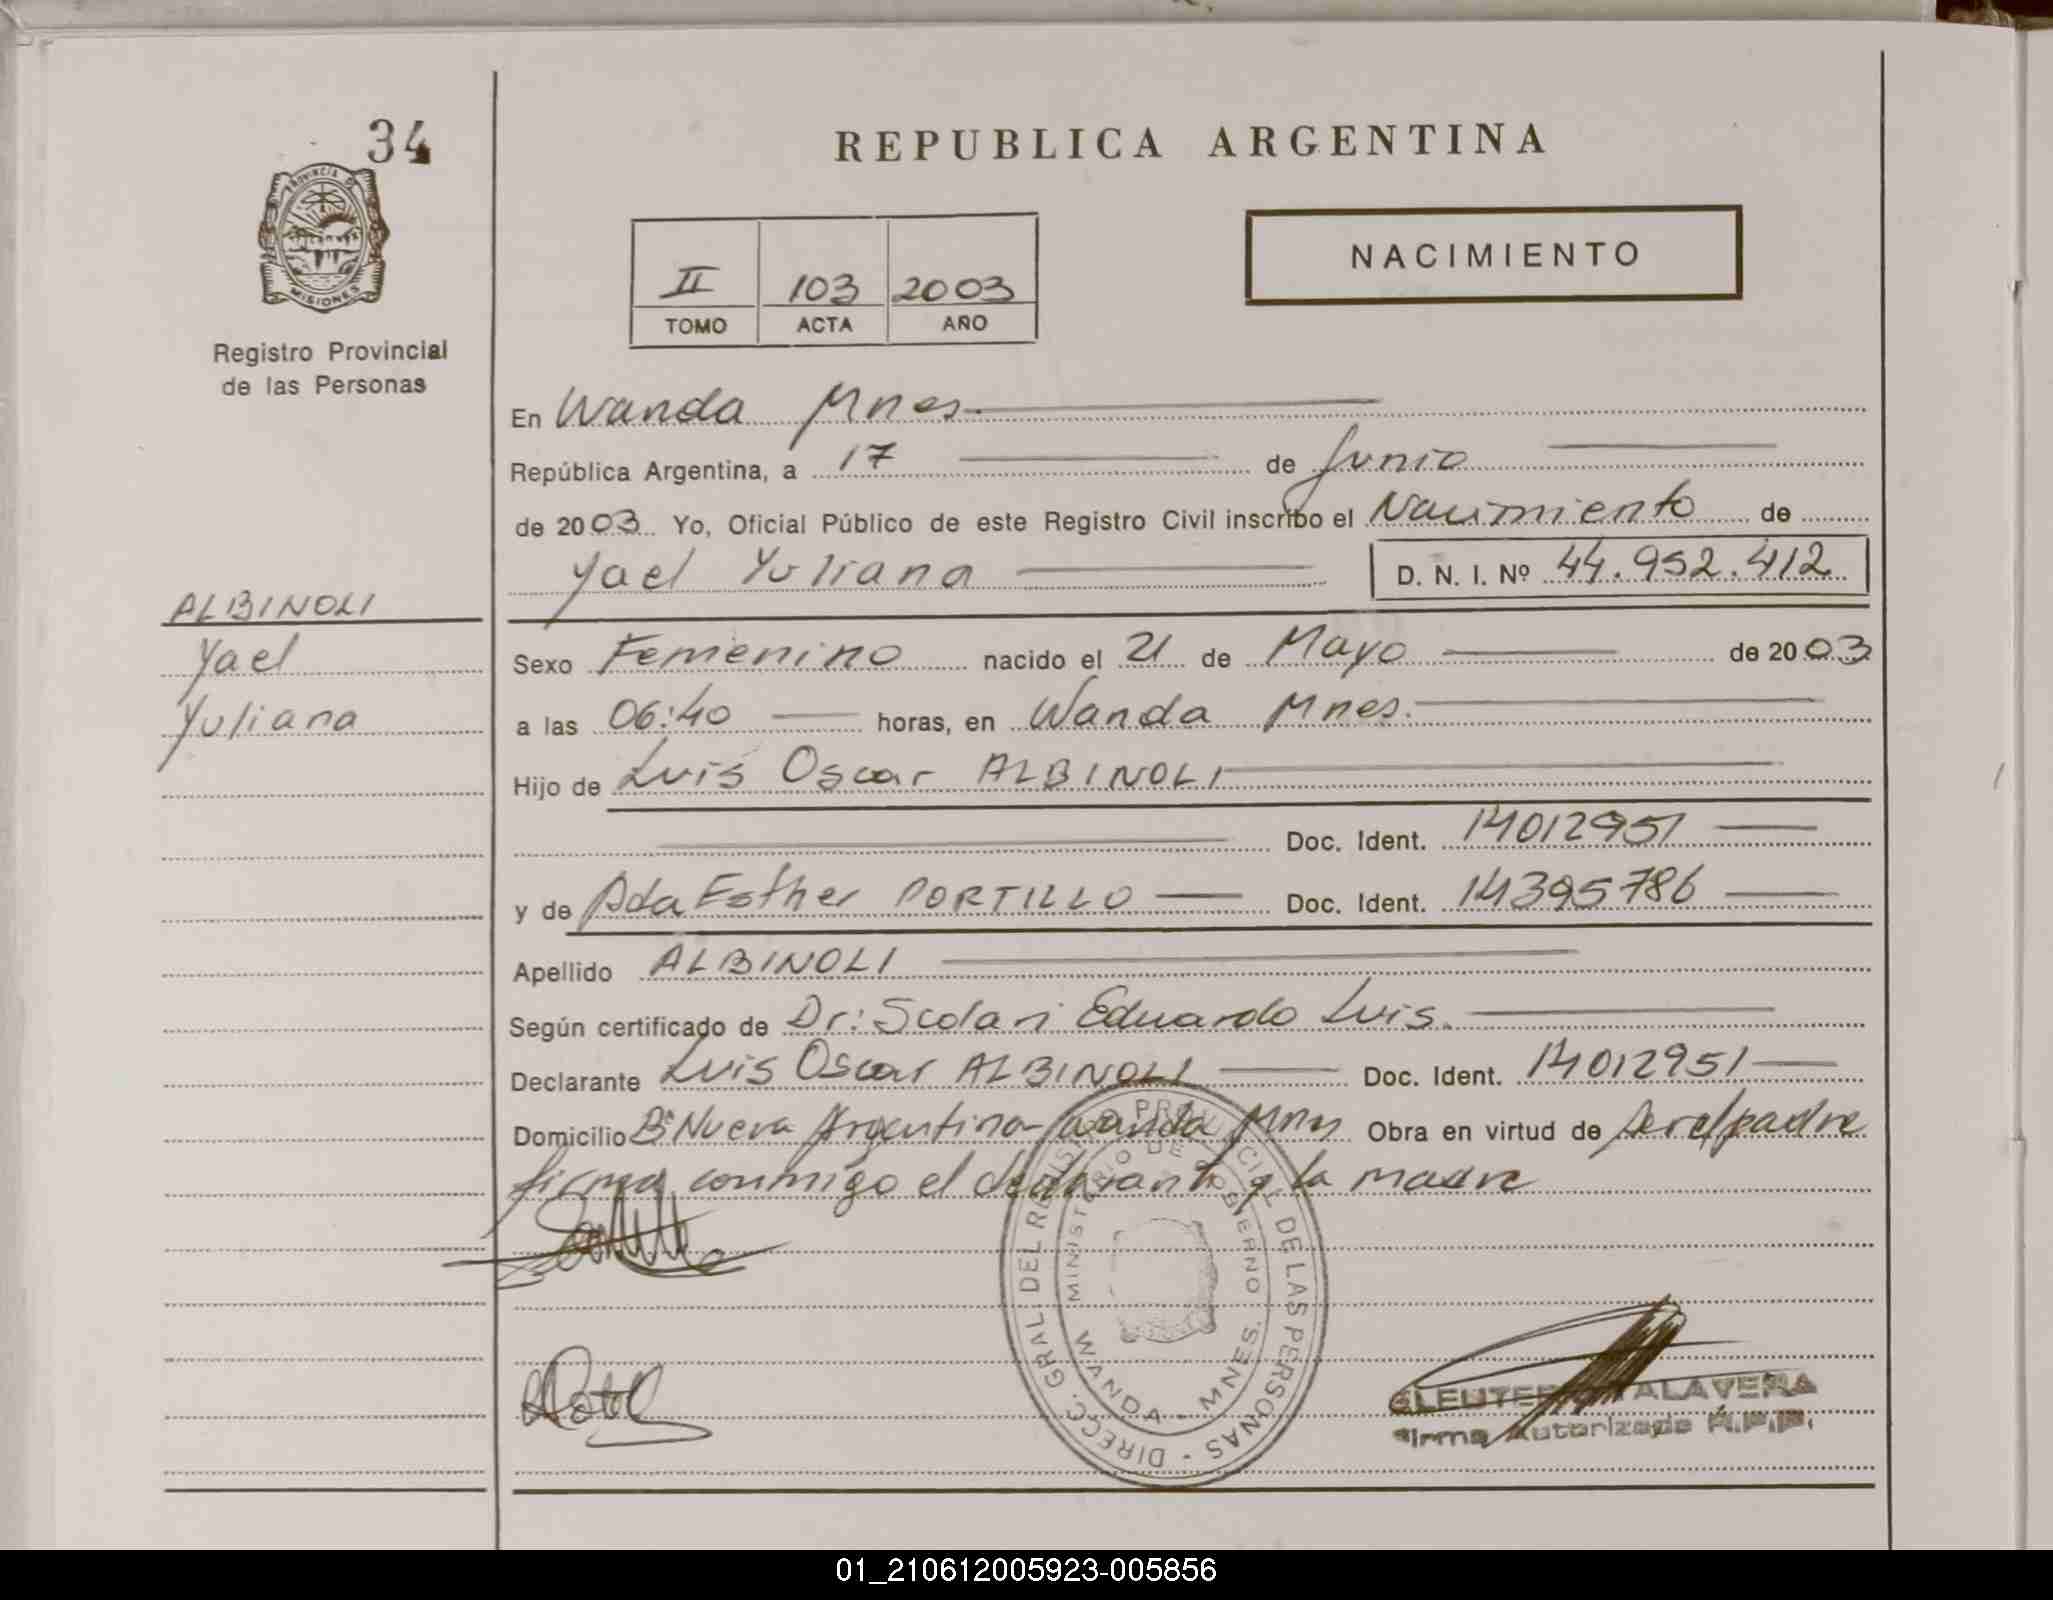 34
PROVINCIA DE
MISIONES
Registro Provincial
de las Personas
ALBINOLI
Yael
Yuliana
REPUBLICA ARGENTINA
NACIMIENTO
II 103 2003
TOMO ACTA AÑO
En Wanda Mnes.
República Argentina, a 17 de Junio
de 2003 Yo, Oficial Público de este Registro Civil inscribo el Nacimiento de
Yael Yuliana D. N. I. Nº 44.952.412
Sexo Femenino nacido el 21 de Mayo de 2003
a las 06:40 horas, en Wanda Mnes.
Hijo de Luis Oscar ALBINOLI
Doc. Ident. 14012951
y de Ada Esther PORTILLO Doc. Ident. 14395786
Apellido ALBINOLI
Según certificado de Dr: Scolari Eduardo Luis.
Declarante Luis Oscar ALBINOLI Doc. Ident. 14012951
Domicilio Bº Nueva Argentina-Wanda Mnes Obra en virtud de ser el padre
firma conmigo el declarante y la madre
DIRECC. GRAL. DEL REGISTRO PROVINCIAL DE LAS PERSONAS
MINISTERIO DE GOBIERNO
WANDA - MNES.
TALAVERA
Firma Autorizada R.P.P.
01_210612005923-005856